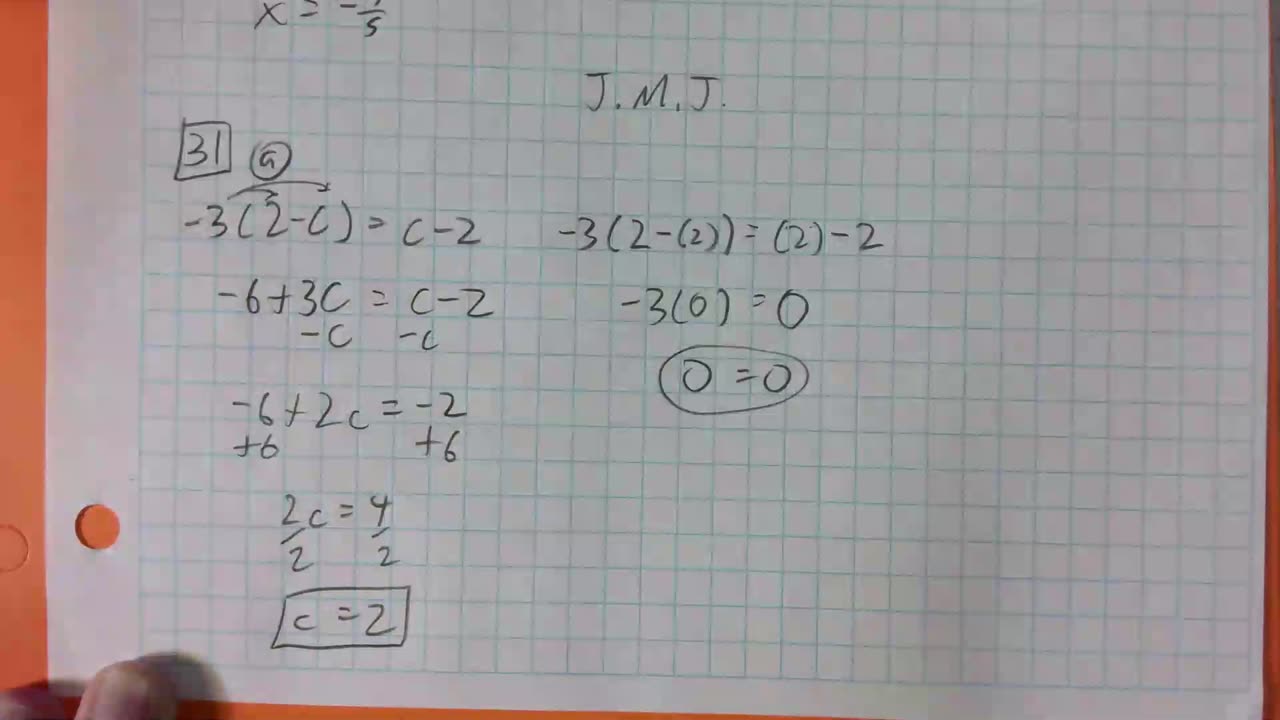 x = -
5
J.M.J.
31 a
-3(2-c) = c-2
-6+3c = c-2
-c -c
-6+2c = -2
+6 +6
2c = 4
2 2
c = 2
-3(2-(2)) = (2)-2
-3(0) = 0
0 = 0